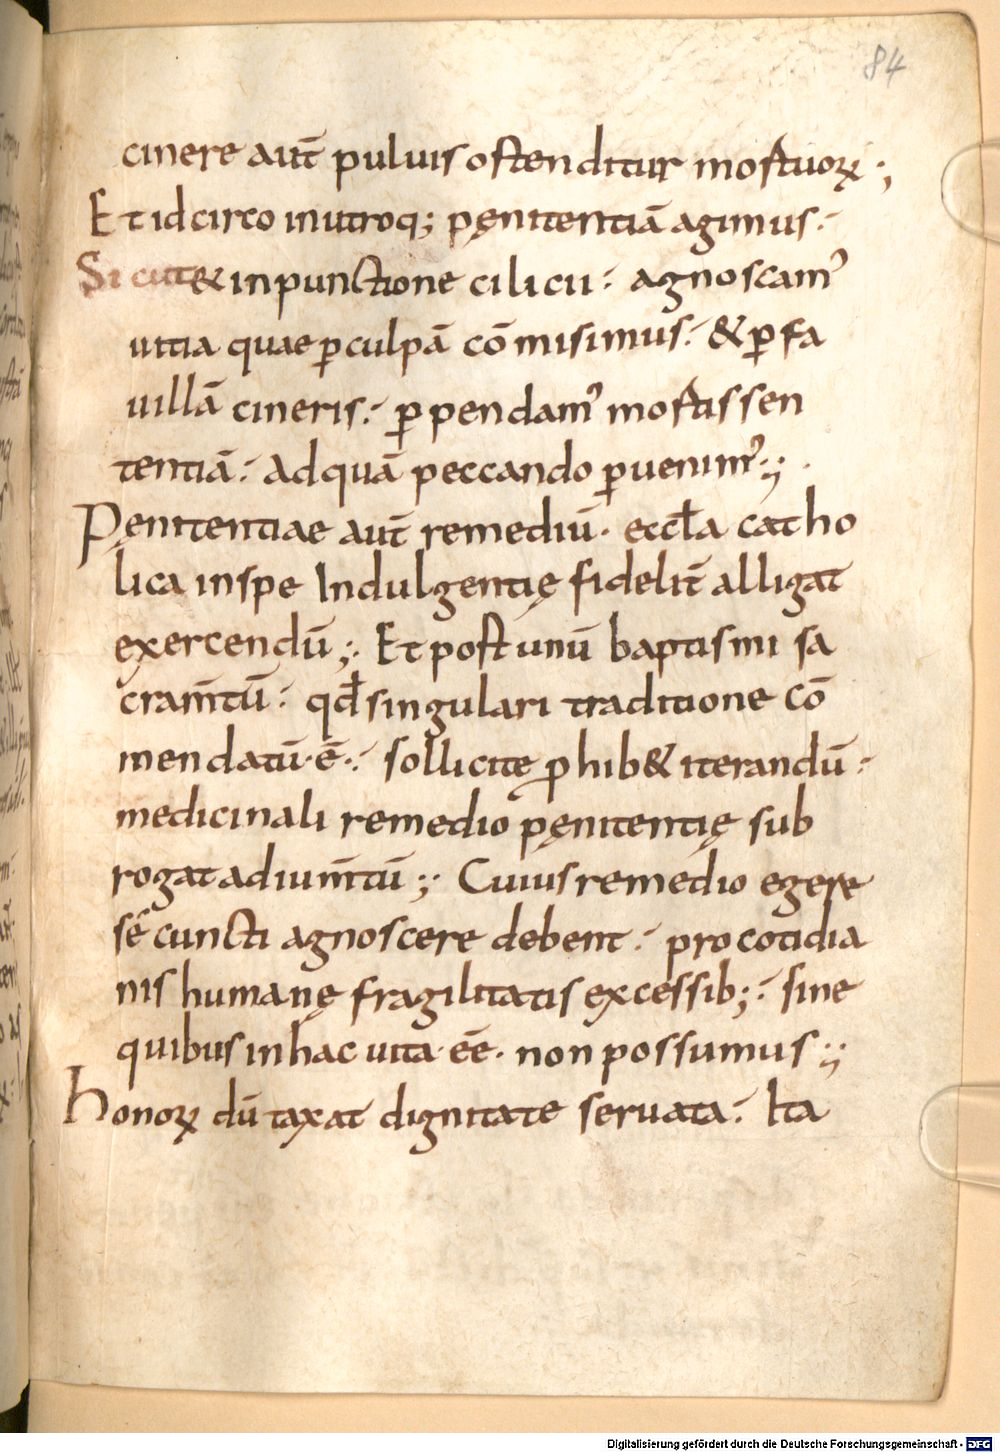 84
cinere aut̄ puluis ostenditur mortuorꝝ ;
Et idcirco inutroq; pęnitentiā agimus.
Sicut & inpunctione cilicii: agnoscam᾽
uitia quae ꝑculpā cōmisimus: & ꝑfa
uillā cineris: ꝑpendam᾽ mortis sen
tentiā: Ad quā peccando ꝑuenim᾽;
Pęnitentiae aut̄ remediū. eccła catho
lica inspe Indulgentię fidelit̄ alligat
exercendū; Et post unū baptismi sa
cram̄tū: qđ singulari traditione cō
mendatū. ē.: sollicite ꝓhib& iterandū:
medicinali remedio pęnitentię sub
rogat adium̄tū; Cuius remedio egere
sé cuncti agnoscere debent: pro cotidia
nis humanę fragilitatis excessib;: sine
quibus in hac uita. eē. non possumus;
Honorꝝ dū taxat dignitate seruata: Ita
Digitalisierung gefördert durch die Deutsche Forschungsgemeinschaft - DFG